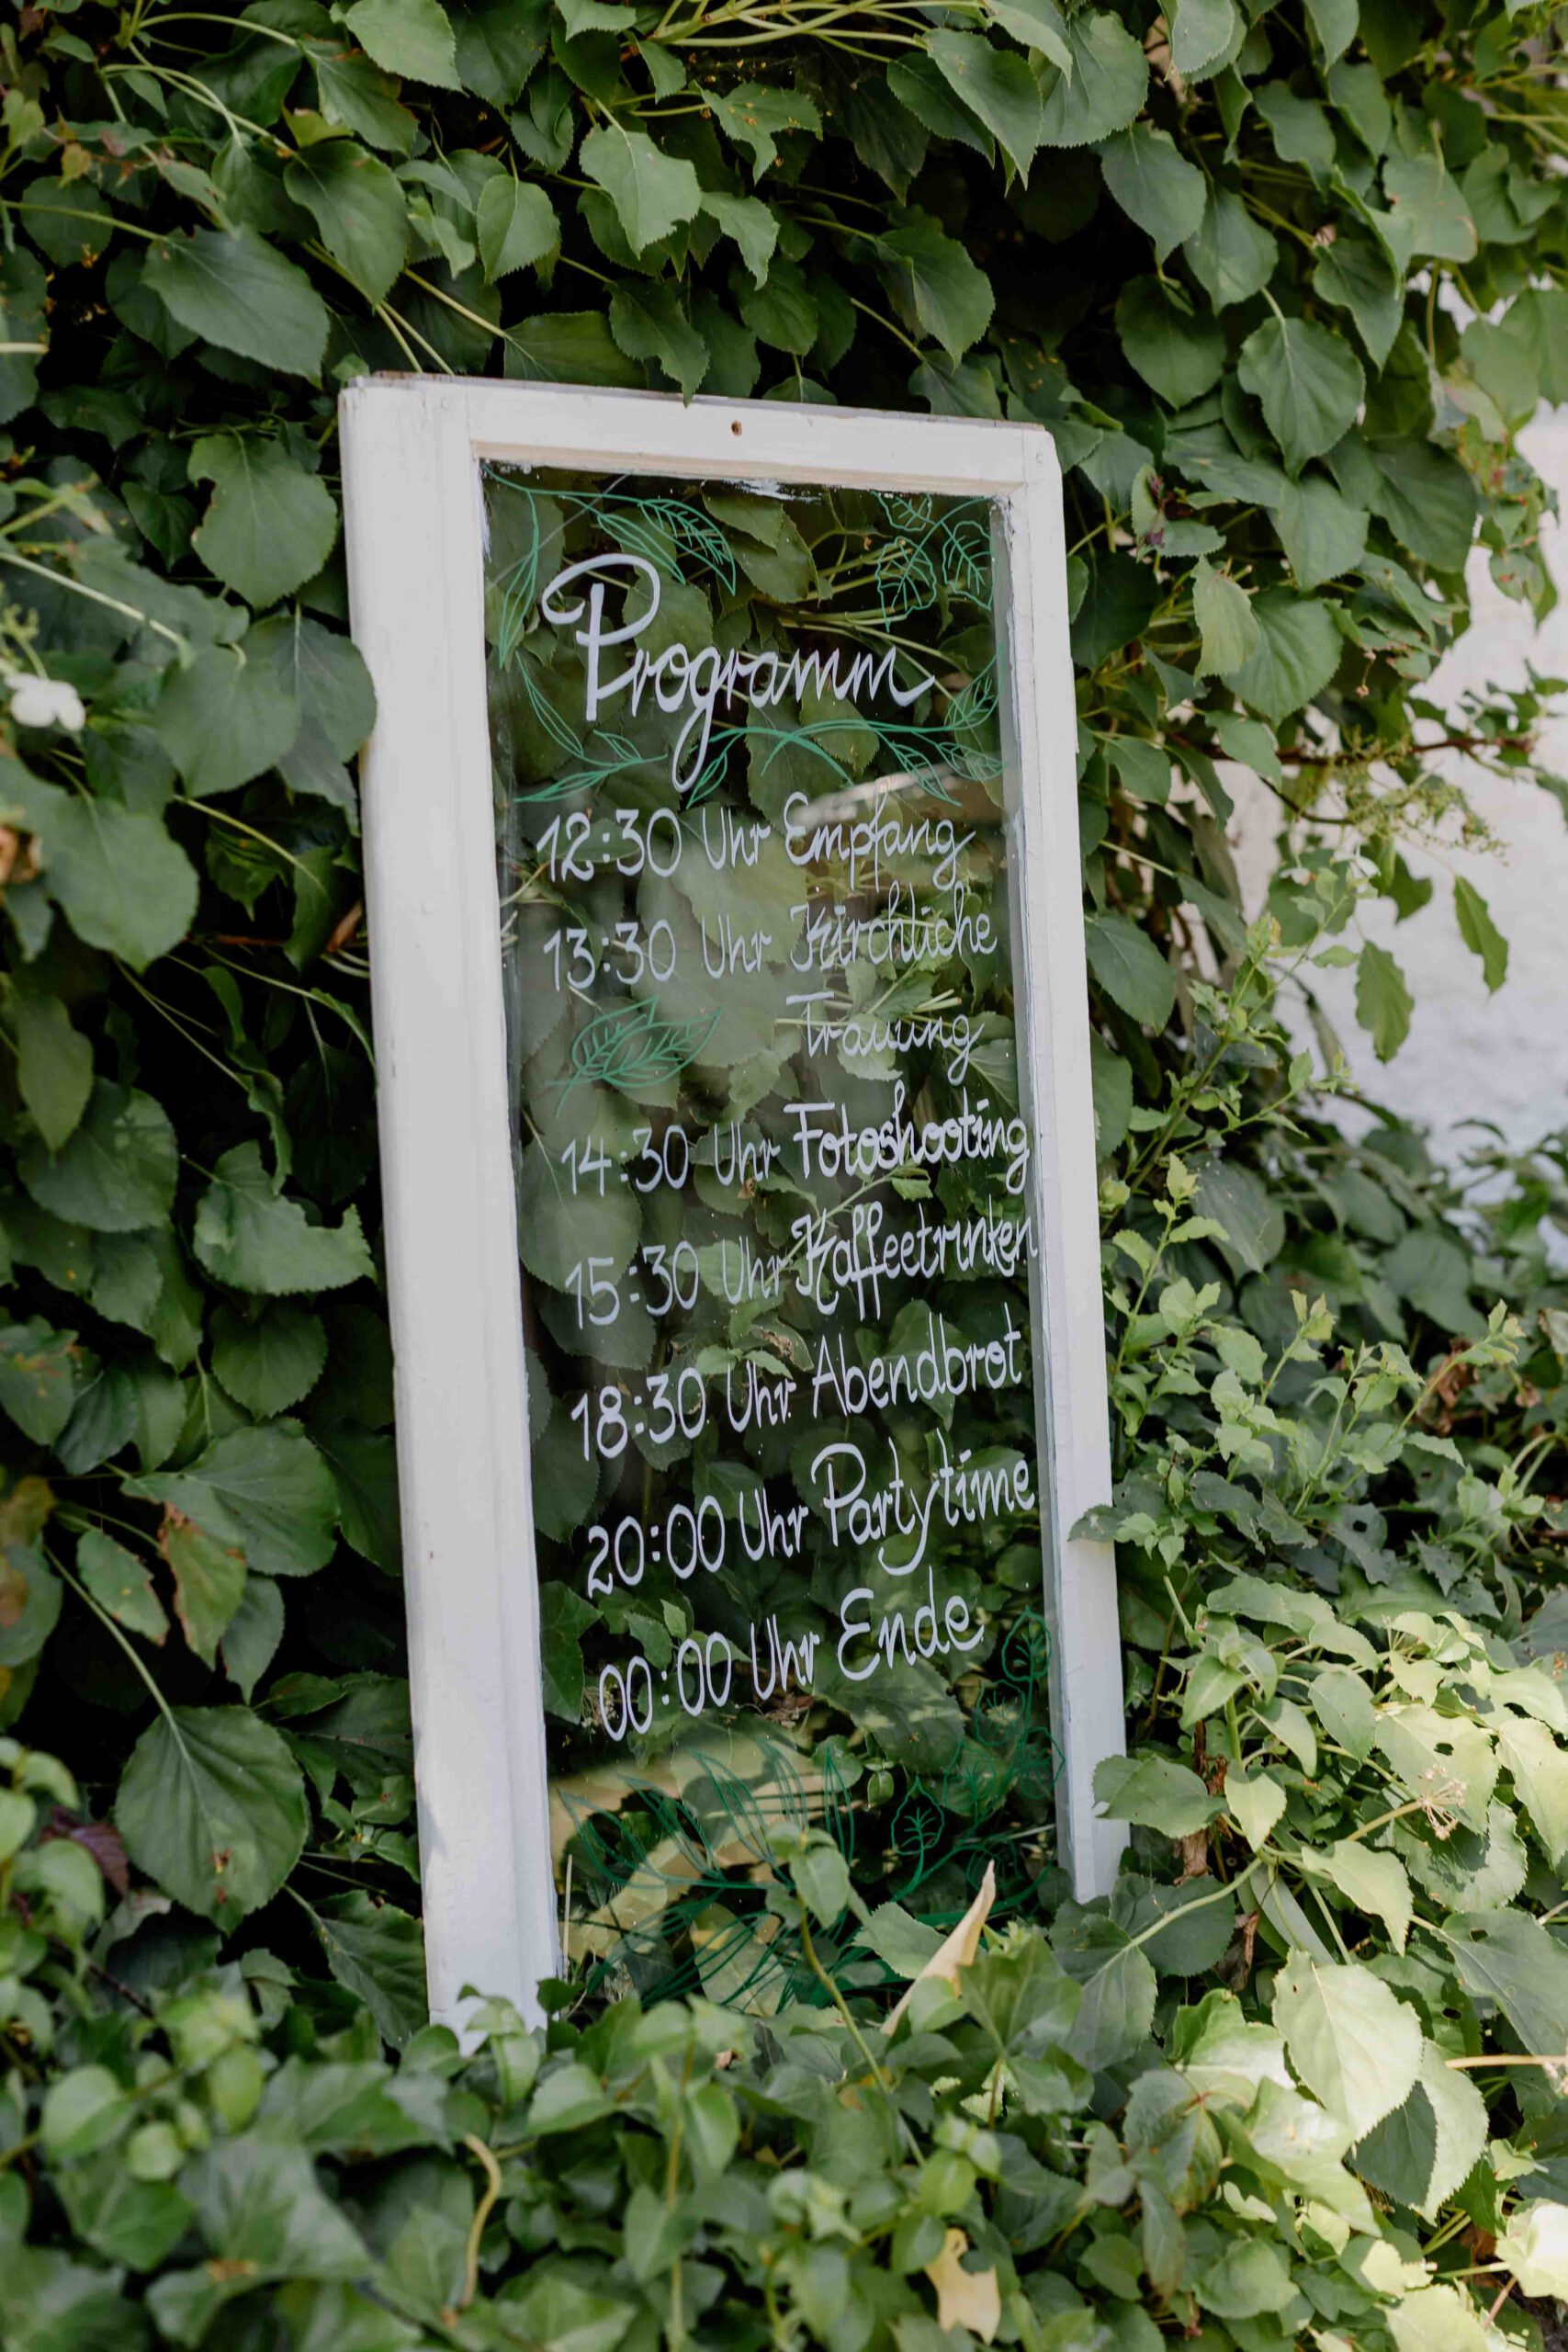 Programm
12:30 Uhr Empfang
13:30 Uhr Kirchliche
Trauung
14:30 Uhr Fotoshooting
15:30 Uhr Kaffeetrinken
18:30 Uhr Abendbrot
20:00 Uhr Partytime
00:00 Uhr Ende